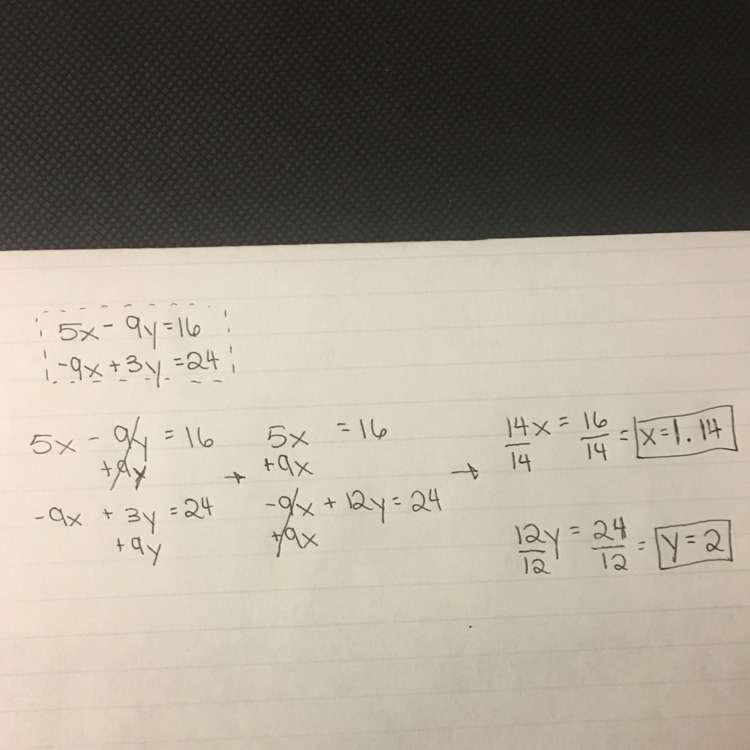 5x - 9y = 16
-9x + 3y = 24
5x - 9y = 16
+9y
-9x + 3y = 24
+9y
→
5x = 16
+9x
-9x + 12y = 24
+9x
→
14x/14 = 16/14 = x = 1.14
12y/12 = 24/12 = y = 2